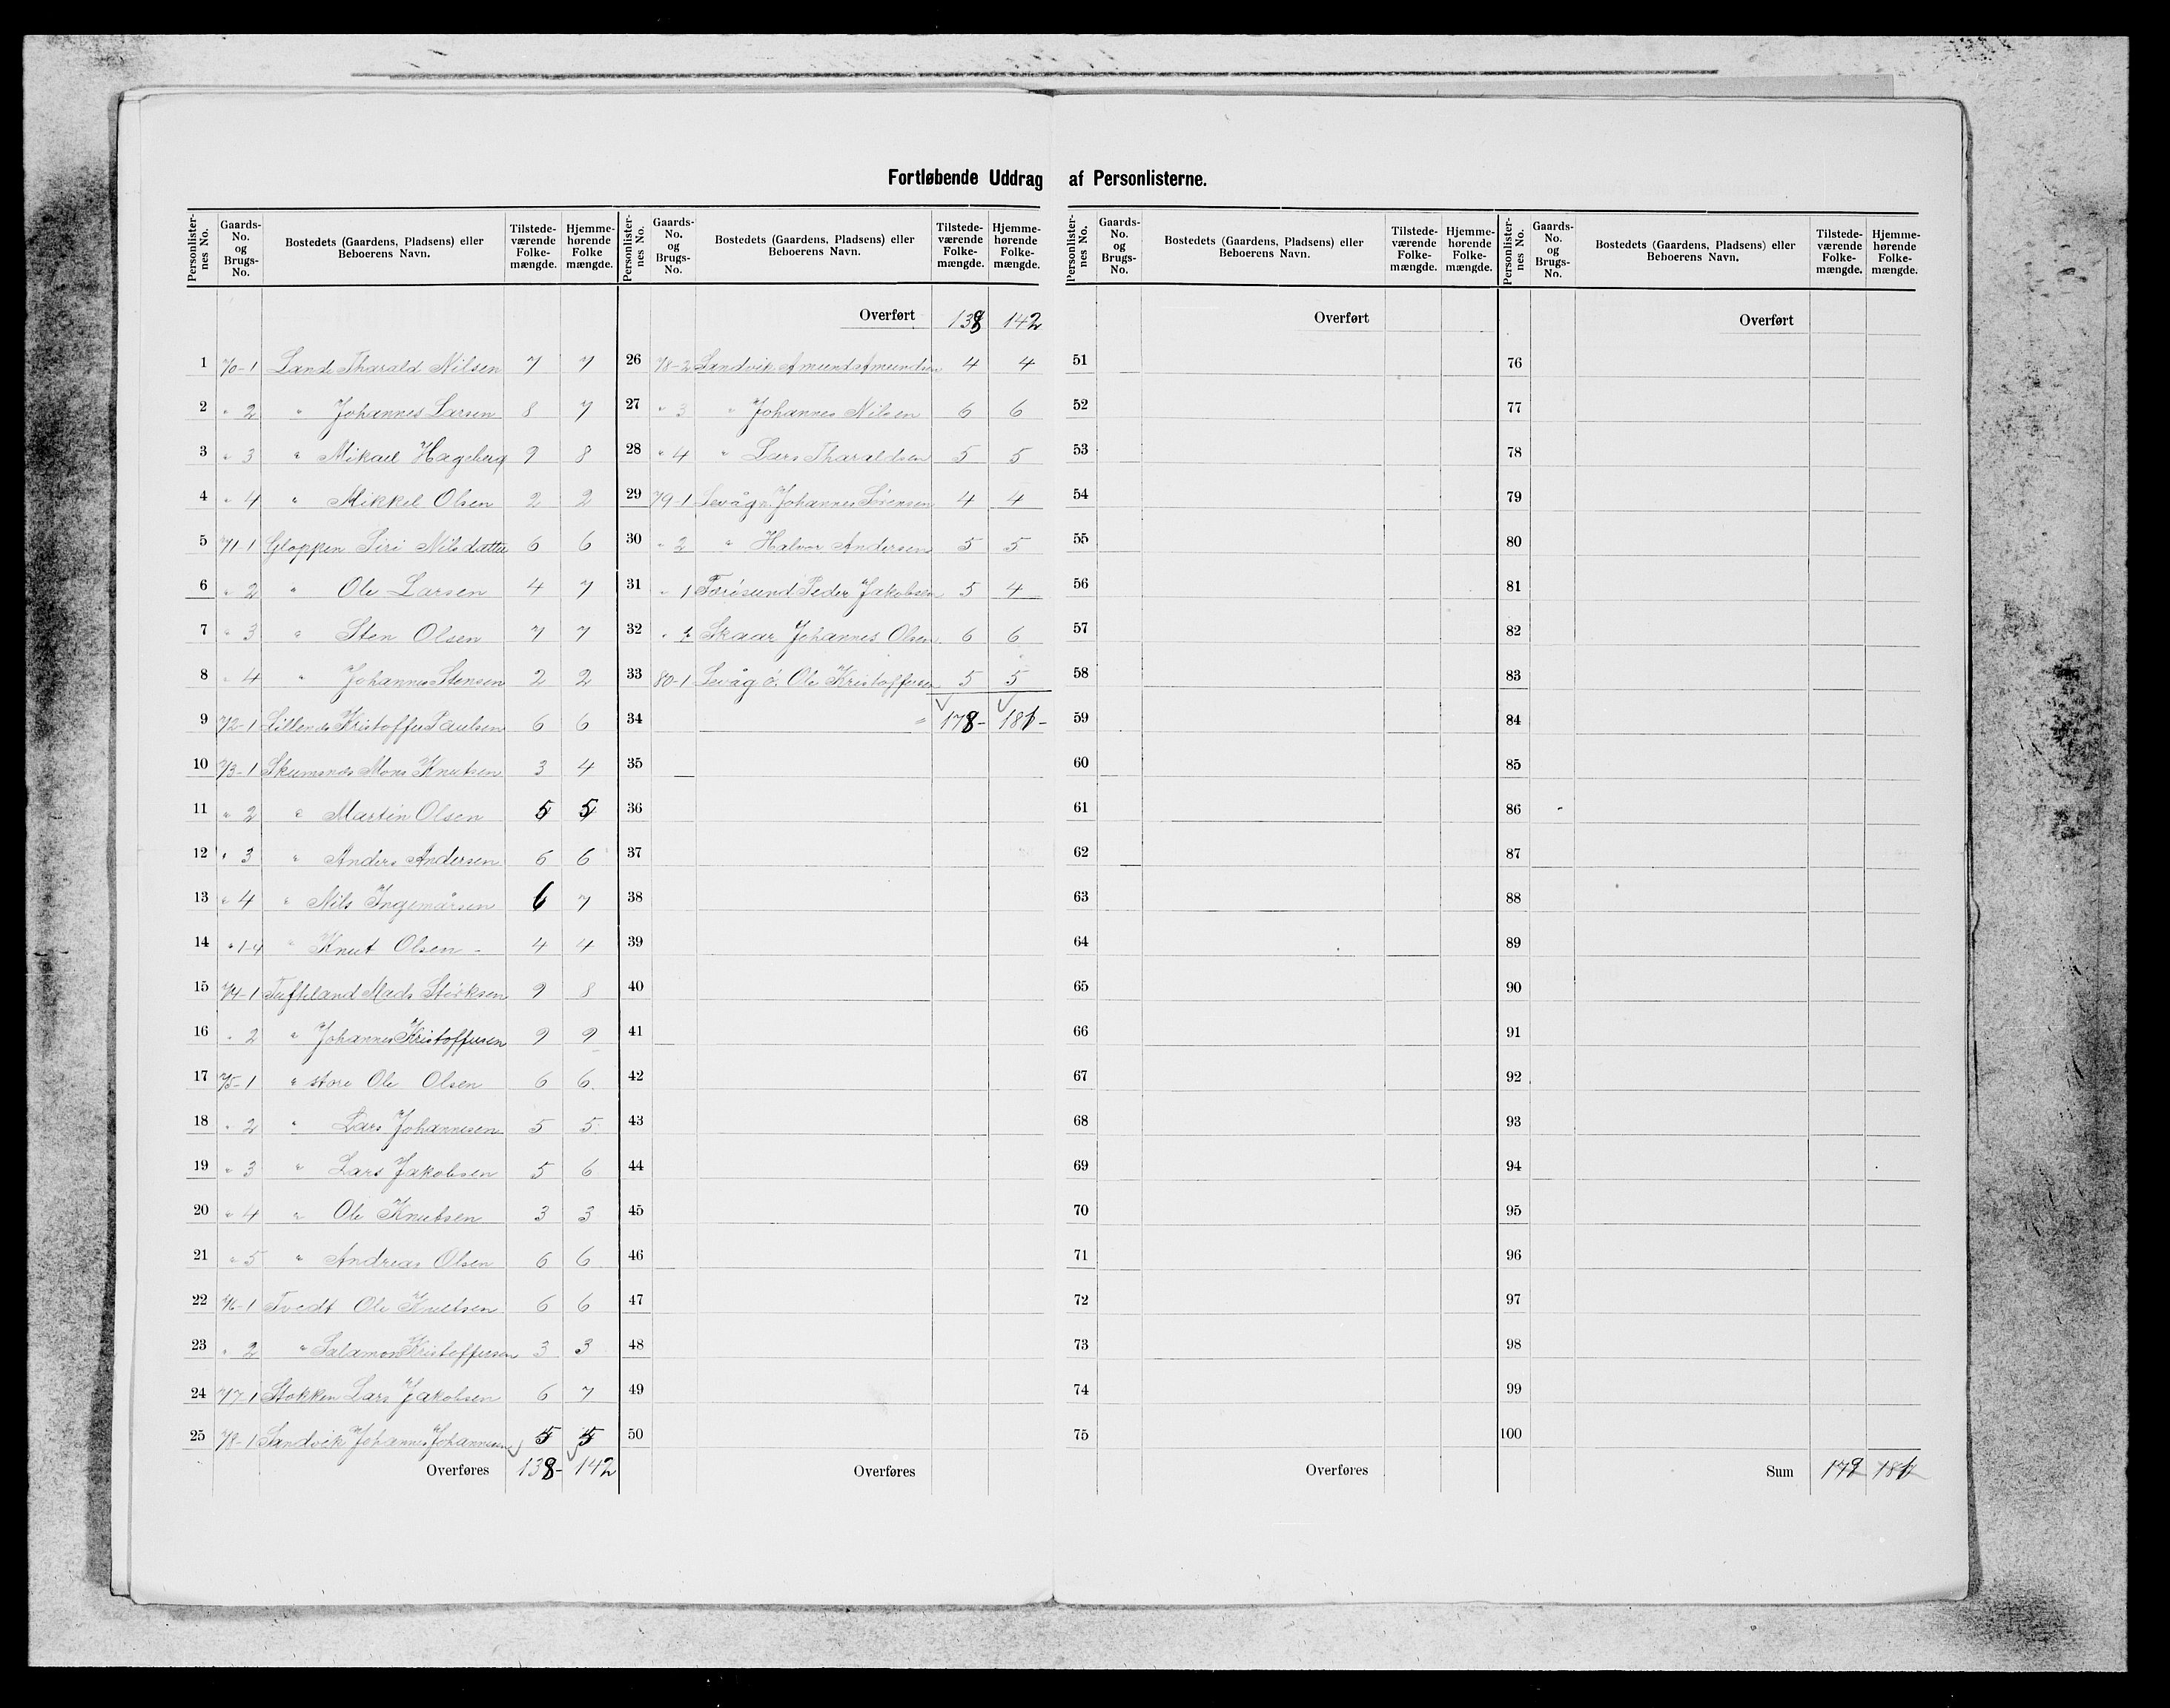 Fortløbende Uddrag af Personlisterne.
Personlister- nes No. Gaards- No. og Brugs- No. Bostedets (Gaardens, Pladsens) eller Beboerens Navn. Tilstede- værende Folke- mængde. Hjemme- hørende Folke mængde. Personlister- nes No. Gaards- No. og Brugs- No. Bostedets (Gaardens, Pladsens) eller Beboerens Navn. Tilstede- værende Folke- mængde. Hjemme- hørende Folke- mængde.
1 70-1 Lande Tharald Nilsen 7 7
2 " 2 " Johannes Larsen 8 7
3 " 3 " Mikael Hageberg 9 8
4 " 4 " Mikkel Olsen 2 2
5 71-1 Gloppen Siri Nilsdatter 6 6
6 " 2 " Ole Larsen 4 7
7 " 3 " Sten Olsen 7 7
8 " 4 " Johannes Stensen 2 2
9 72-1 Kristoffer Paulsen 6 6
10 73-1 Skumsnes Mons Knutsen 3 4
11 " 2 " Martin Olsen 5 5
12 " 3 " Anders Andersen 6 6
13 " 4 " Nils Ingemårsen 6 7
14 " 1-4 " Knut Olsen - 4 4
15 74-1 Tufteland Mads Störksen 9 8
16 " 2 " Johannes Kristoffersen 9 9
17 75-1 " store Ole Olsen 6 6
18 " 2 " Lars Johannesen 5 5
19 " 3 " Lars Jakobsen 5 6
20 " 4 " Ole Knutsen 3 3
21 " 5 " Andreas Olsen 6 6
22 76-1 Tvedt Ole Knutsen 6 6
23 " 2 " Salamon Kristoffersen 3 3
24 77-1 Stokken Lars Jakobsen 6 7
25 78-1 Sandvik Johannes Johannesen 5 5
Overføres 138- 142
Overført 138 142
26 78-2 Sandvik Amund Amundsen 4 4
27 " 3 " Johannes Nilsen 6 6
28 " 4 " Lars Tharaldsen 5 5
29 79-1 Levåg n. Johannes Sörensen 4 4
30 " 2 " Halvor Andersen 5 5
31 " 1 Færösund Peder Jakobsen 5 4
32 " Skaar Johannes Olsen 6 6
33 80-1 Levåg ö. Ole Kristoffersen 5 5
34 " 178- 181-
35
36
37
38
39
40
41
42
43
44
45
46
47
48
49
50
Overføres
Personlister- nes No. Gaards- No. og Brugs- No. Bostedets (Gaardens, Pladsens) eller Beboerens Navn. Tilstede- værende Folke- mængde. Hjemme- hørende Folke- mængde. Personlister- nes No. Gaards- No. og Brugs- No. Bostedets (Gaardens, Pladsens) eller Beboerens Navn. Tilstede- værende Folke- mængde. Hjemme- hørende Folke- mængde.
Overført
51
52
53
54
55
56
57
58
59
60
61
62
63
64
65
66
67
68
69
70
71
72
73
74
75
Overføres
Overført
76
77
78
79
80
81
82
83
84
85
86
87
88
89
90
91
92
93
94
95
96
97
98
99
100
Sum 179 181